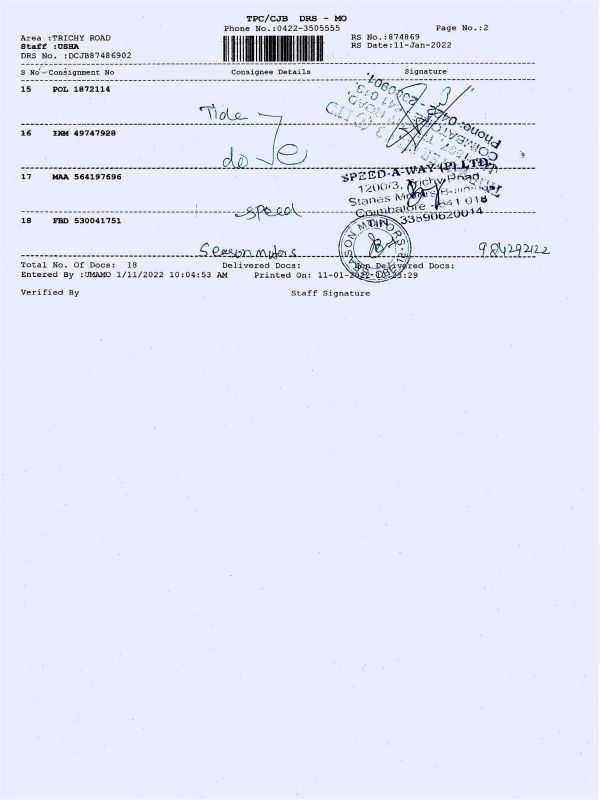 TPC/CJB DRS - MO
Phone No.:0422-3505555
Page No.:2
Area :TRICHY ROAD
RS No.:874869
Staff :USHA
RS Date:11-Jan-2022
DRS No. :DCJB87486902
S No Consignment No Consignee Details Signature
15 POL 1872114
Tide
16 IXM 49747928
do
17 MAA 564197696
SPEED-A-WAY (P) LTD.
1200/3, Trichy Road,
Stanes Motors Buildings
Coimbatore - 641 018
TIN 33890620014
speed
18 FBD 530041751
Season Motors
Total No. Of Docs: 18 Delivered Docs: Non Delivered Docs:
Entered By :UMAMO 1/11/2022 10:04:53 AM Printed On: 11-01-2022 10:23:29
Verified By Staff Signature